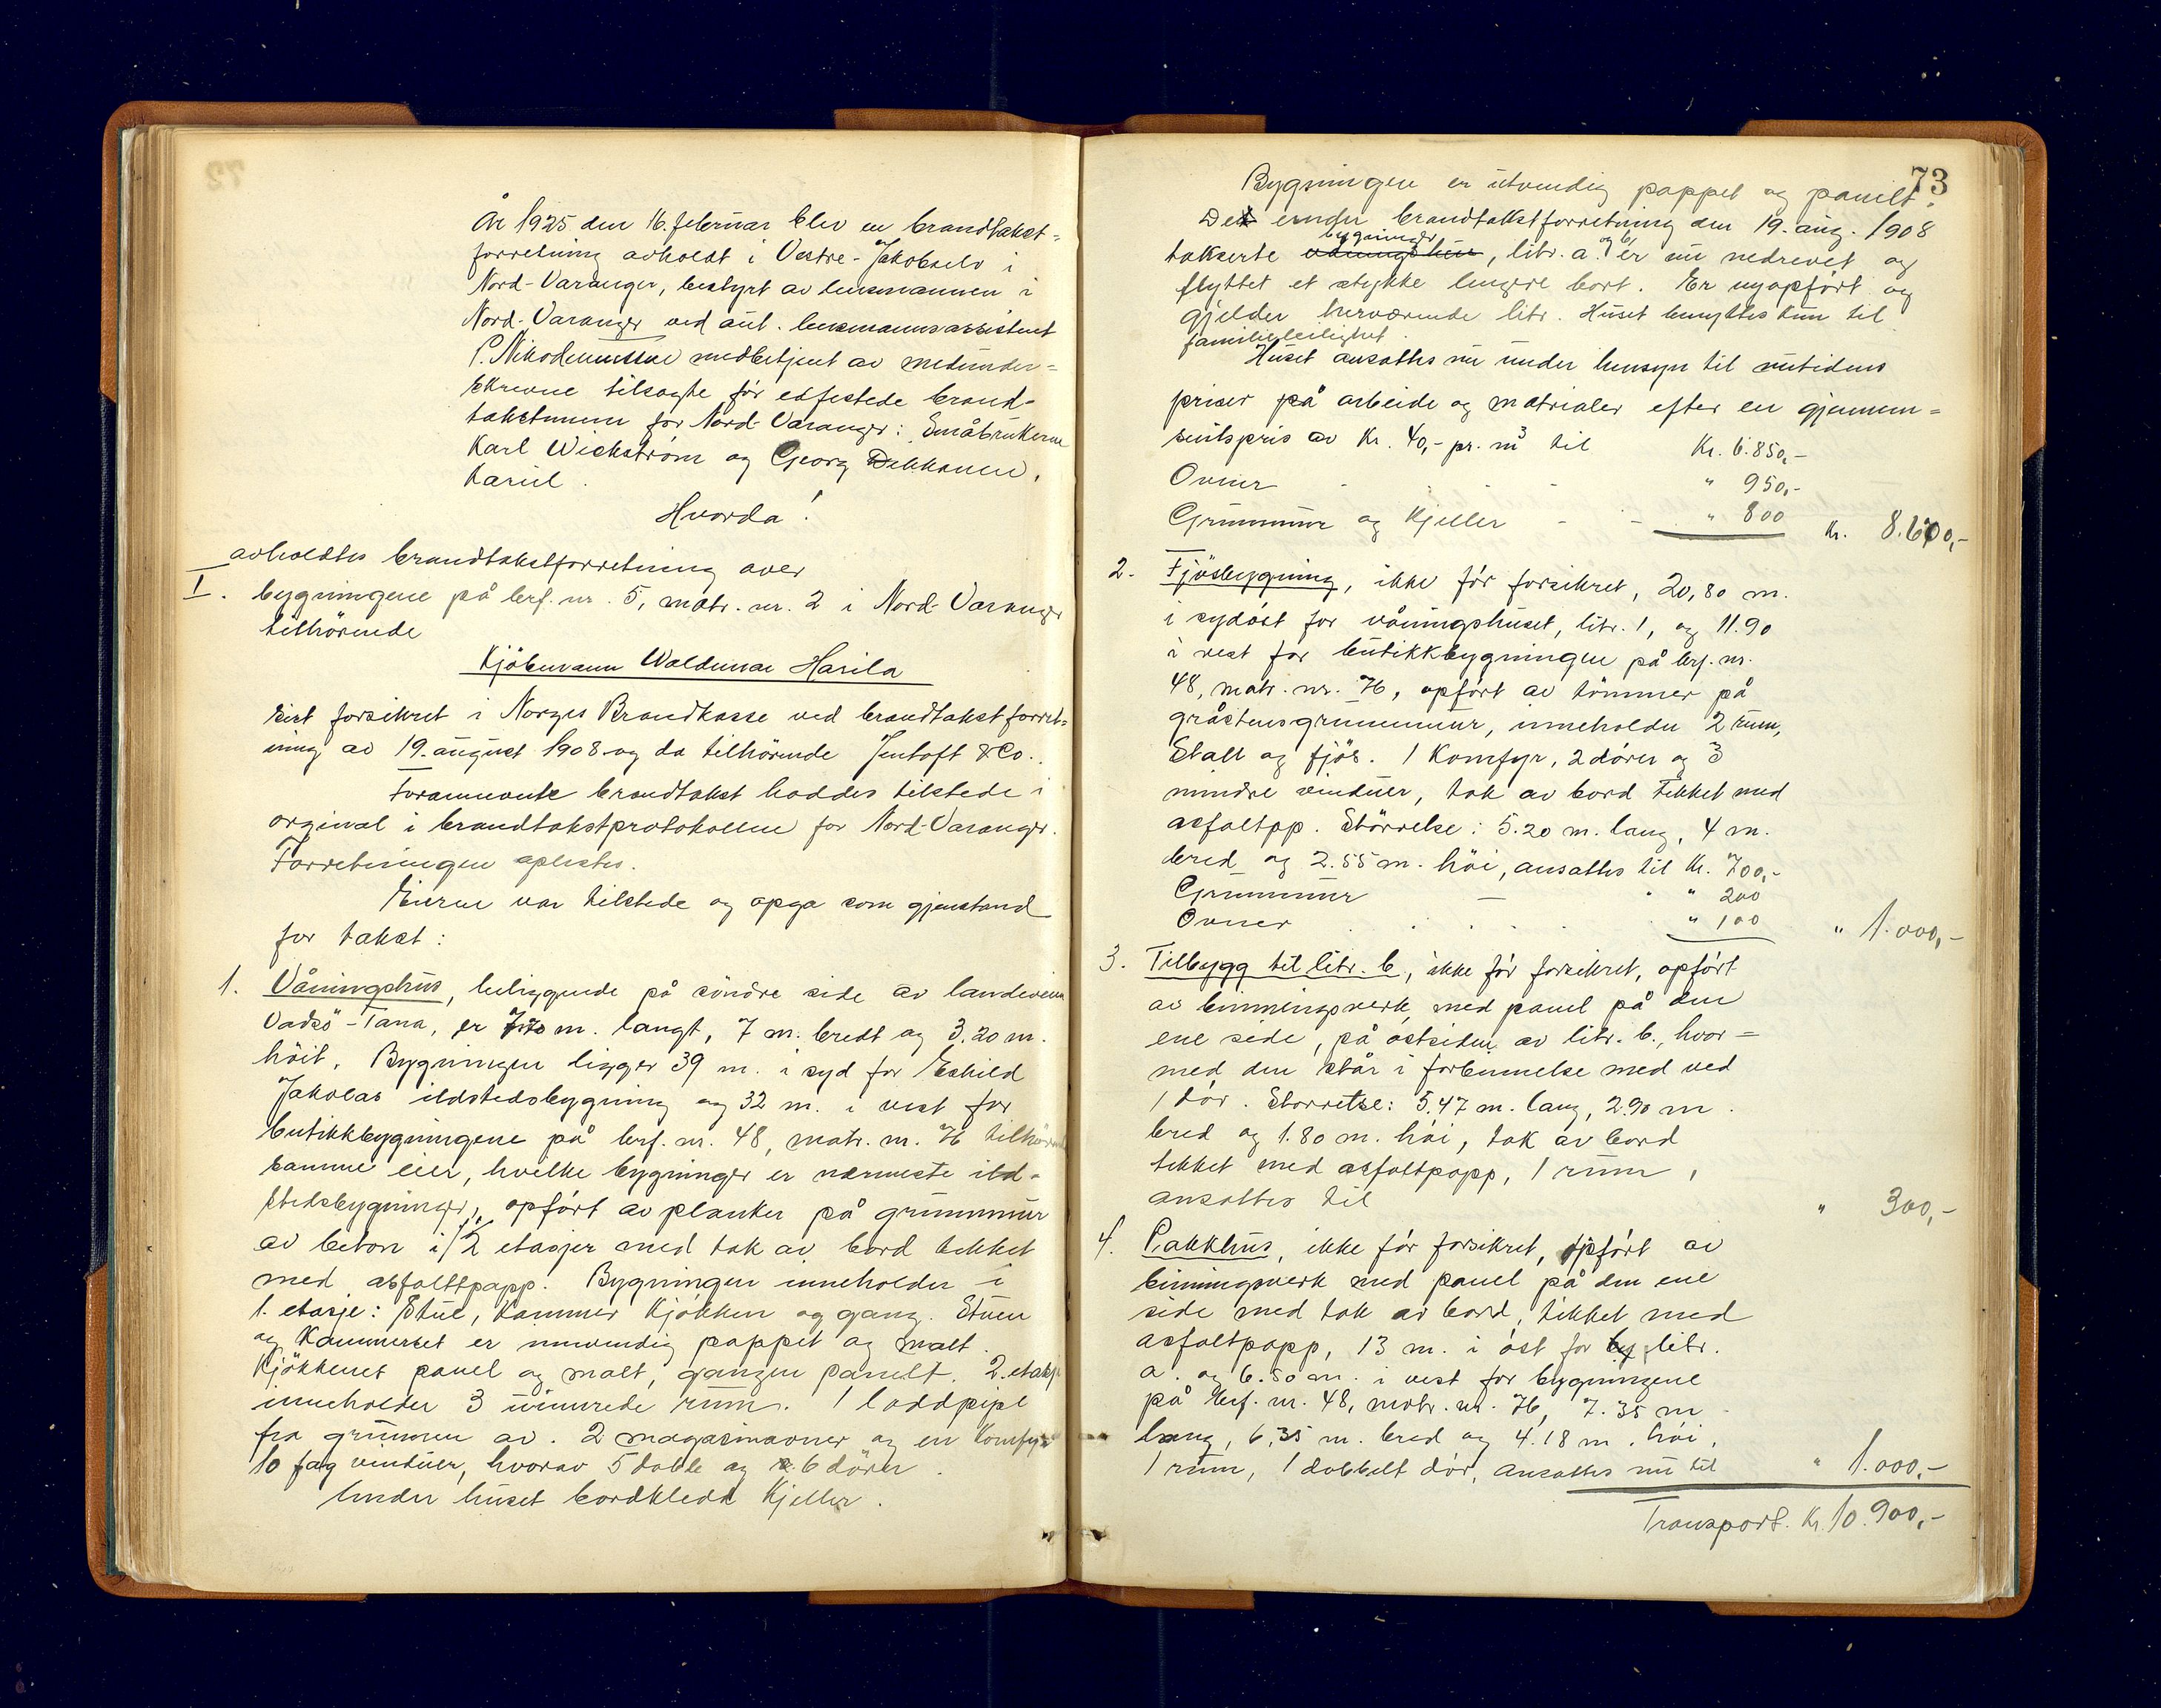 År 1925 den 16. februar blev en brandtakst-
forretning avholdt i Vestre-Jakobselv i
Nord-Varanger, bestyrt av lensmannen i
Nord-Varanger ved aut. lensmannsassistent
P. Nikodemussen medbetjent av medunder-
skrevne tilsagte før edfestede brand-
takstmenn for Nord-Varanger: Småbrukerne
Karl Wickstrøm og Georg
Hvorda!
avholdtes brandtakstforretning over
I. bygningene på brf. nr. 5, matr. nr. 2 i Nord-Varanger
tilhørende
Kjøbmann Waldemar Harila
sist forsikret i Norges Brandkasse ved brandtakstforret-
ning av 19. august 1908 og da tilhørende Jentoft & Co.
Forannevnte brandtakst haddes tilstede i
orginal i brandtakstprotokollen for Nord-Varanger.
Forretningen oplestes.
Eieren var tilstede og opga som gjenstand
for takst:
1. Våningshus, beliggende på søndre side av landeveien
Vadsö-Tana, er m. langt, 7 m. bredt og 3.20 m.
höit. Bygningen ligger 39 m. i syd for Eskild
Jakolas ildstedsbygning og 32 m. i vest for
butikkbygningene på brf. nr. 48, matr. nr. 76 tilhørende
samme eier, hvilke bygninger er nærmeste ild-
stedsbygninger, opført av planker på grunnmur
av beton i 1/2 etasjer med tak av bord tekket
med asfaltpapp. Bygningen inneholder i
1. etasje: Stue, kammer kjøkken og gang. Stuen
og Kammerset er innvendig pappet og malt.
Kjökkenet panel og malt, gangen panelt. 2. etasje
inneholder 3 uinnrede rum. 1 loddpipe
fra grunnen av. 2 magasinovner og en komfyr
10 fag vinduer, hvorav 5 doble og 6 dörer.
Under huset bordkledd kjeller.
73
Bygningen er utvendig pappet og panelt.
De under brandtakstforretning den 19. aug. 1908
takserte våningshus bygninger, litr. a. og b. er nu nedrevet og
flyttet et stykke lengere bort. Er nyopført og
gjelder herværende litr. Huset benyttes kun til
familieleilighet.
Huset ansattes nu under hensyn til nutidens
priser på arbeide og matrialer efter en gjennem-
snitspris av Kr. 40,- pr. m³ til Kr. 6.850,-
Ovner " 950,-
Grunnmur og Kjeller " 800 Kr. 8.600,-
2. Fjösbygning, ikke før forsikret, 20,80 m.
i sydöst for våningshuset, litr. 1, og 11.90
i vest for butikkbygningen på brf. nr.
48, matr. nr. 76, opført av tömmer på
gråstensgrunnmur, inneholder 2 rum,
Stall og fjös. 1 Komfyr, 2 dörer og 3
mindre vinduer, tak av bord tekket med
asfaltpp. Störrelse: 5.20 m. lang, 4 m.
bred og 2.55 m. höi, ansattes til Kr. 700,-
Grunnmur " " 200
Ovner " 100 " 1.000,-
3. Tilbygg til litr. b, ikke før forsikret, opført
av binningsverk, med panel på den
ene side, på østsiden av litr. b., hvor-
med den står i forbinnelse med ved
1 dör. Storrelse: 5.47 m. lang, 2.90 m.
bred og 1.80 m. höi, tak av bord
tekket med asfaltpapp, 1 rum,
ansattes til " 300,-
4. Pakkhus, ikke før forsikret, opført av
binningsverk med panel på den ene
side med tak av bord, tekket med
asfaltpapp, 13 m. i öst for by litr.
a. og 6.50 m. i vest for bygningene
på brf. nr. 48, matr. nr. 76, 7.35 m
lang, 6,35 m. bred og 4.18 m. höi,
1 rum, 1 dobbelt dör, ansattes nu til " 1.000,-
Transport. Kr. 10.900,-